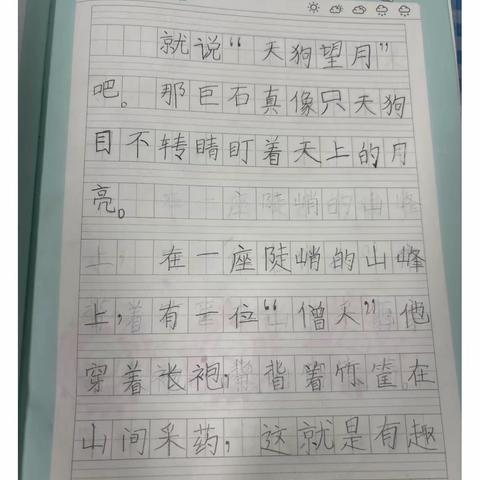 就说“天狗望月”
吧。那巨石真像只天狗
目不转睛盯着天上的月
亮。
在一座陡峭的山峰
上，有一位“僧人”，他
穿着长袍，背着竹筐在
山间采药，这就是有趣